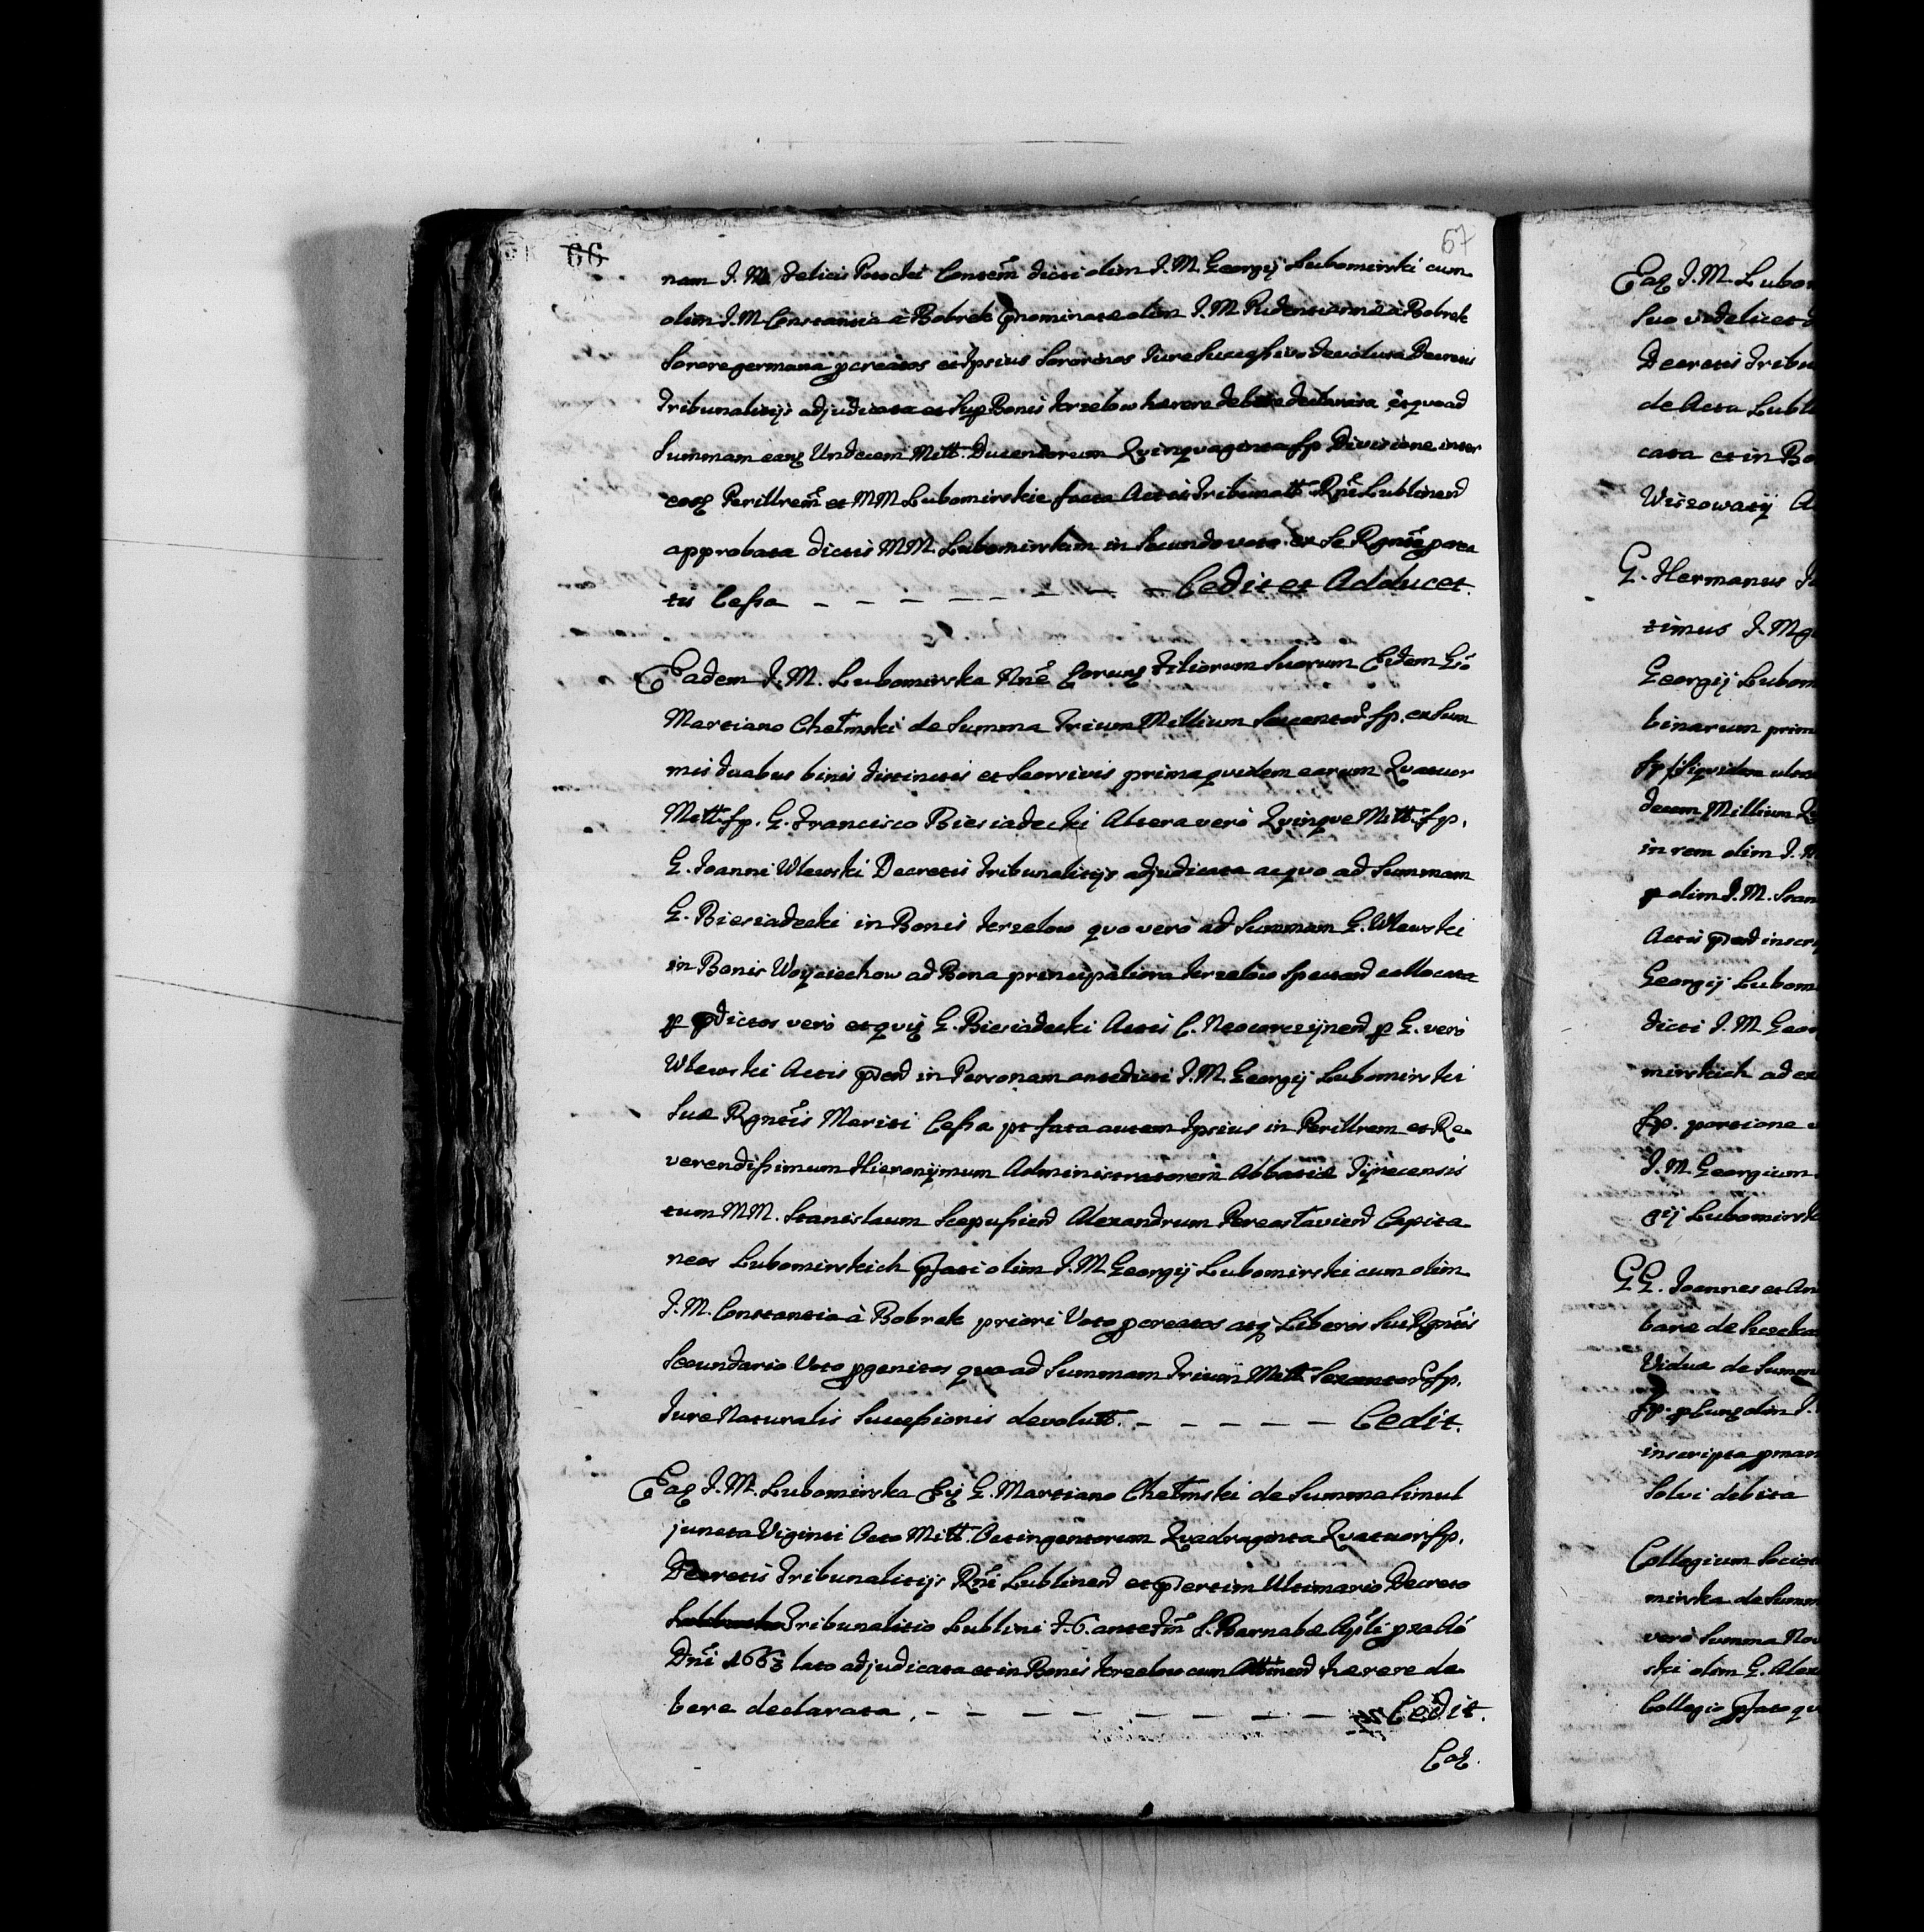 66
67
nam J. M. Felicis Potocki Consem̃ dicti olim J. M. Georgij Lubomirski cum
olim J. M. Constantia à Bobrek p̱nominatæ olim J. M. Pudentiannæ à Bobrek
Sorore germana p̱creatos et Ipsius Sororinos Jure Successivo devoluta Decretis
Tribunalitijs adjudicata et Sup̱ Bonis Xerzelow hærere debere declarata et quo ad
Summam eanq̱ Undecim Mill. Ducentorum Quinquaginta fp. Divisione inter
eosq̱ Perillrem̃ et MM Lubomirskie facta Actis Tribunall. Rgñi Lublinen̄
approbata dictis MM. Lubomirskim in Secundo voto ex Se Rgnte p̱crea
tis Cessa — — — — — — — Cedit et Adducet.
Eadem J. M. Lubomirska Nñe Eorunq̱ Filiorum Suorum Eidem Gso
Martiano Chełmski de Summa Trium Millium Sexcentor̃ fp. ex Sum
mis duabus binis distinctis et Seorsivis prima quidem earum Quatuor
Mill. fp. G. Francisco Biesiadecki Altera verò Quinque Mill. fp.
G. Joanni Wlewski Decretis Tribunalitijs adjudicata ac quo ad Summam
G. Biesiadecki in Bonis Xerzelow quo verò ad Summam G. Wlewski
in Bonis Woyciechow ad Bona principaliora Xerzelow Spectan̄ collocata
p̱ p̱dictos verò et quid G. Biesiadecki Actis C. Neocorczynen̄ p̱ G. verò
Wlewski Actis p̱ñen̄ in Personam antedicti J. M. Georgij Lubomirski
Suæ Rgntis Mariti Cessa pt fata autem Ipsius in Perillrem et Re-
verendissimum Hieronymum Administratorem Abbatiæ Tynecensis
tum MM. Stanislaum Scepusien̄ Alexandrum Pereasłavien̄ Capita-
neos Lubomirskich p̱fati olim J. M. Georgij Lubomirski cum olim
J. M. Constantia à Bobrek priori Voto p̱creatos atq̱ Liberos Sui Rgntis
Secundario Voto p̱genitos quo ad Summam Trium Mill. Sexcentor̃ fp.
Jure Naturalis Successionis devolutt. — — — — — Cedit.
Eaq̱ J. M. Lubomirska Eiq̱ G. Martiano Chełmski de Summa Simul
juncta Viginti Octo Mill. Octingentorum Quadraginta Quatuor fp.
Decretis Tribunalitijs Rgñi Lublinen̄ et p̱sertim Ultimario Decreto
Tribunalitio Lublini F. 6. ante Fm̃ S. Barnabæ Ap̃li p̱x Aõ
Dñi 1663 lato adjudicata et in Bonis Xerzelow cum Attinen̄ hærere de
bere declarata. — — — — — — — — Cedit.
Eaq̱.
Eaq̱ J. M. Lubo
Suo videlicet
Decretis Tribu
de Acta Lubl
cata et in Bo
Wiszowatÿ A
G. Hermanus
timus J. Mg
Georgij Lubom
binarum prim
fp. siquidem
decem Millium
in rem olim J. M
p̱ olim J. M. Stan
Actis p̱ñen̄ inscr
Georgij Lubom
dicti J. M. Geor
mirskich ad
fp. portione
J. M. Georgium
gij Lubomirsk
GG. Joannes et An
bare de
Viduæ de Summ
fp. p̱ Eunq̱ olim J.
inscripta p̱man
Solvi debita
Collegium Societ
mirska de Summ
verò Summa No
ski olim G. Alex
Collegio p̱fato qu